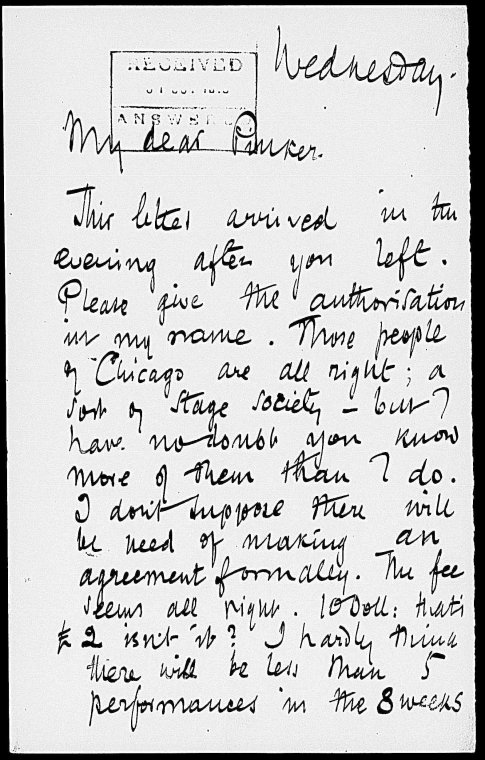 Wednesday.
RECEIVED
ANSWERED
My dear Pinker.
This letter arrived in the
evening after you left.
Please give the authorisation
in my name. Those people
of Chicago are all right; a
sort of Stage Society – but I
have no doubt you know
more of them than I do.
I don't suppose there will
be need of making an
agreement formally. The fee
seems all right. 10 Doll: that's
£2 isn't it? I hardly think
there will be less than 5
performances in the 8 weeks